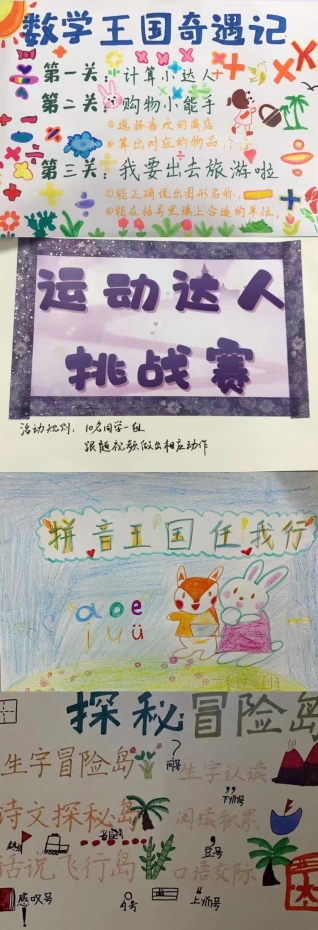 数学王国奇遇记
第一关：计算小达人
第二关：购物小能手
①选择喜欢的商店
②算出对应的物品
第三关：我要出去旅游啦
①能正确说出图形名称，
②能在括号里填上合适的单位，
运动达人
挑战赛
活动规则：10名同学一组
跟随视频做出相应动作
拼音王国任我行
a o e
i u ü
探秘冒险岛
生字冒险岛
问号
生字认读
下引号
诗文探秘岛
阅读积累
省略号
逗号
话说飞行岛
口语交际
感叹号
句号
上引号